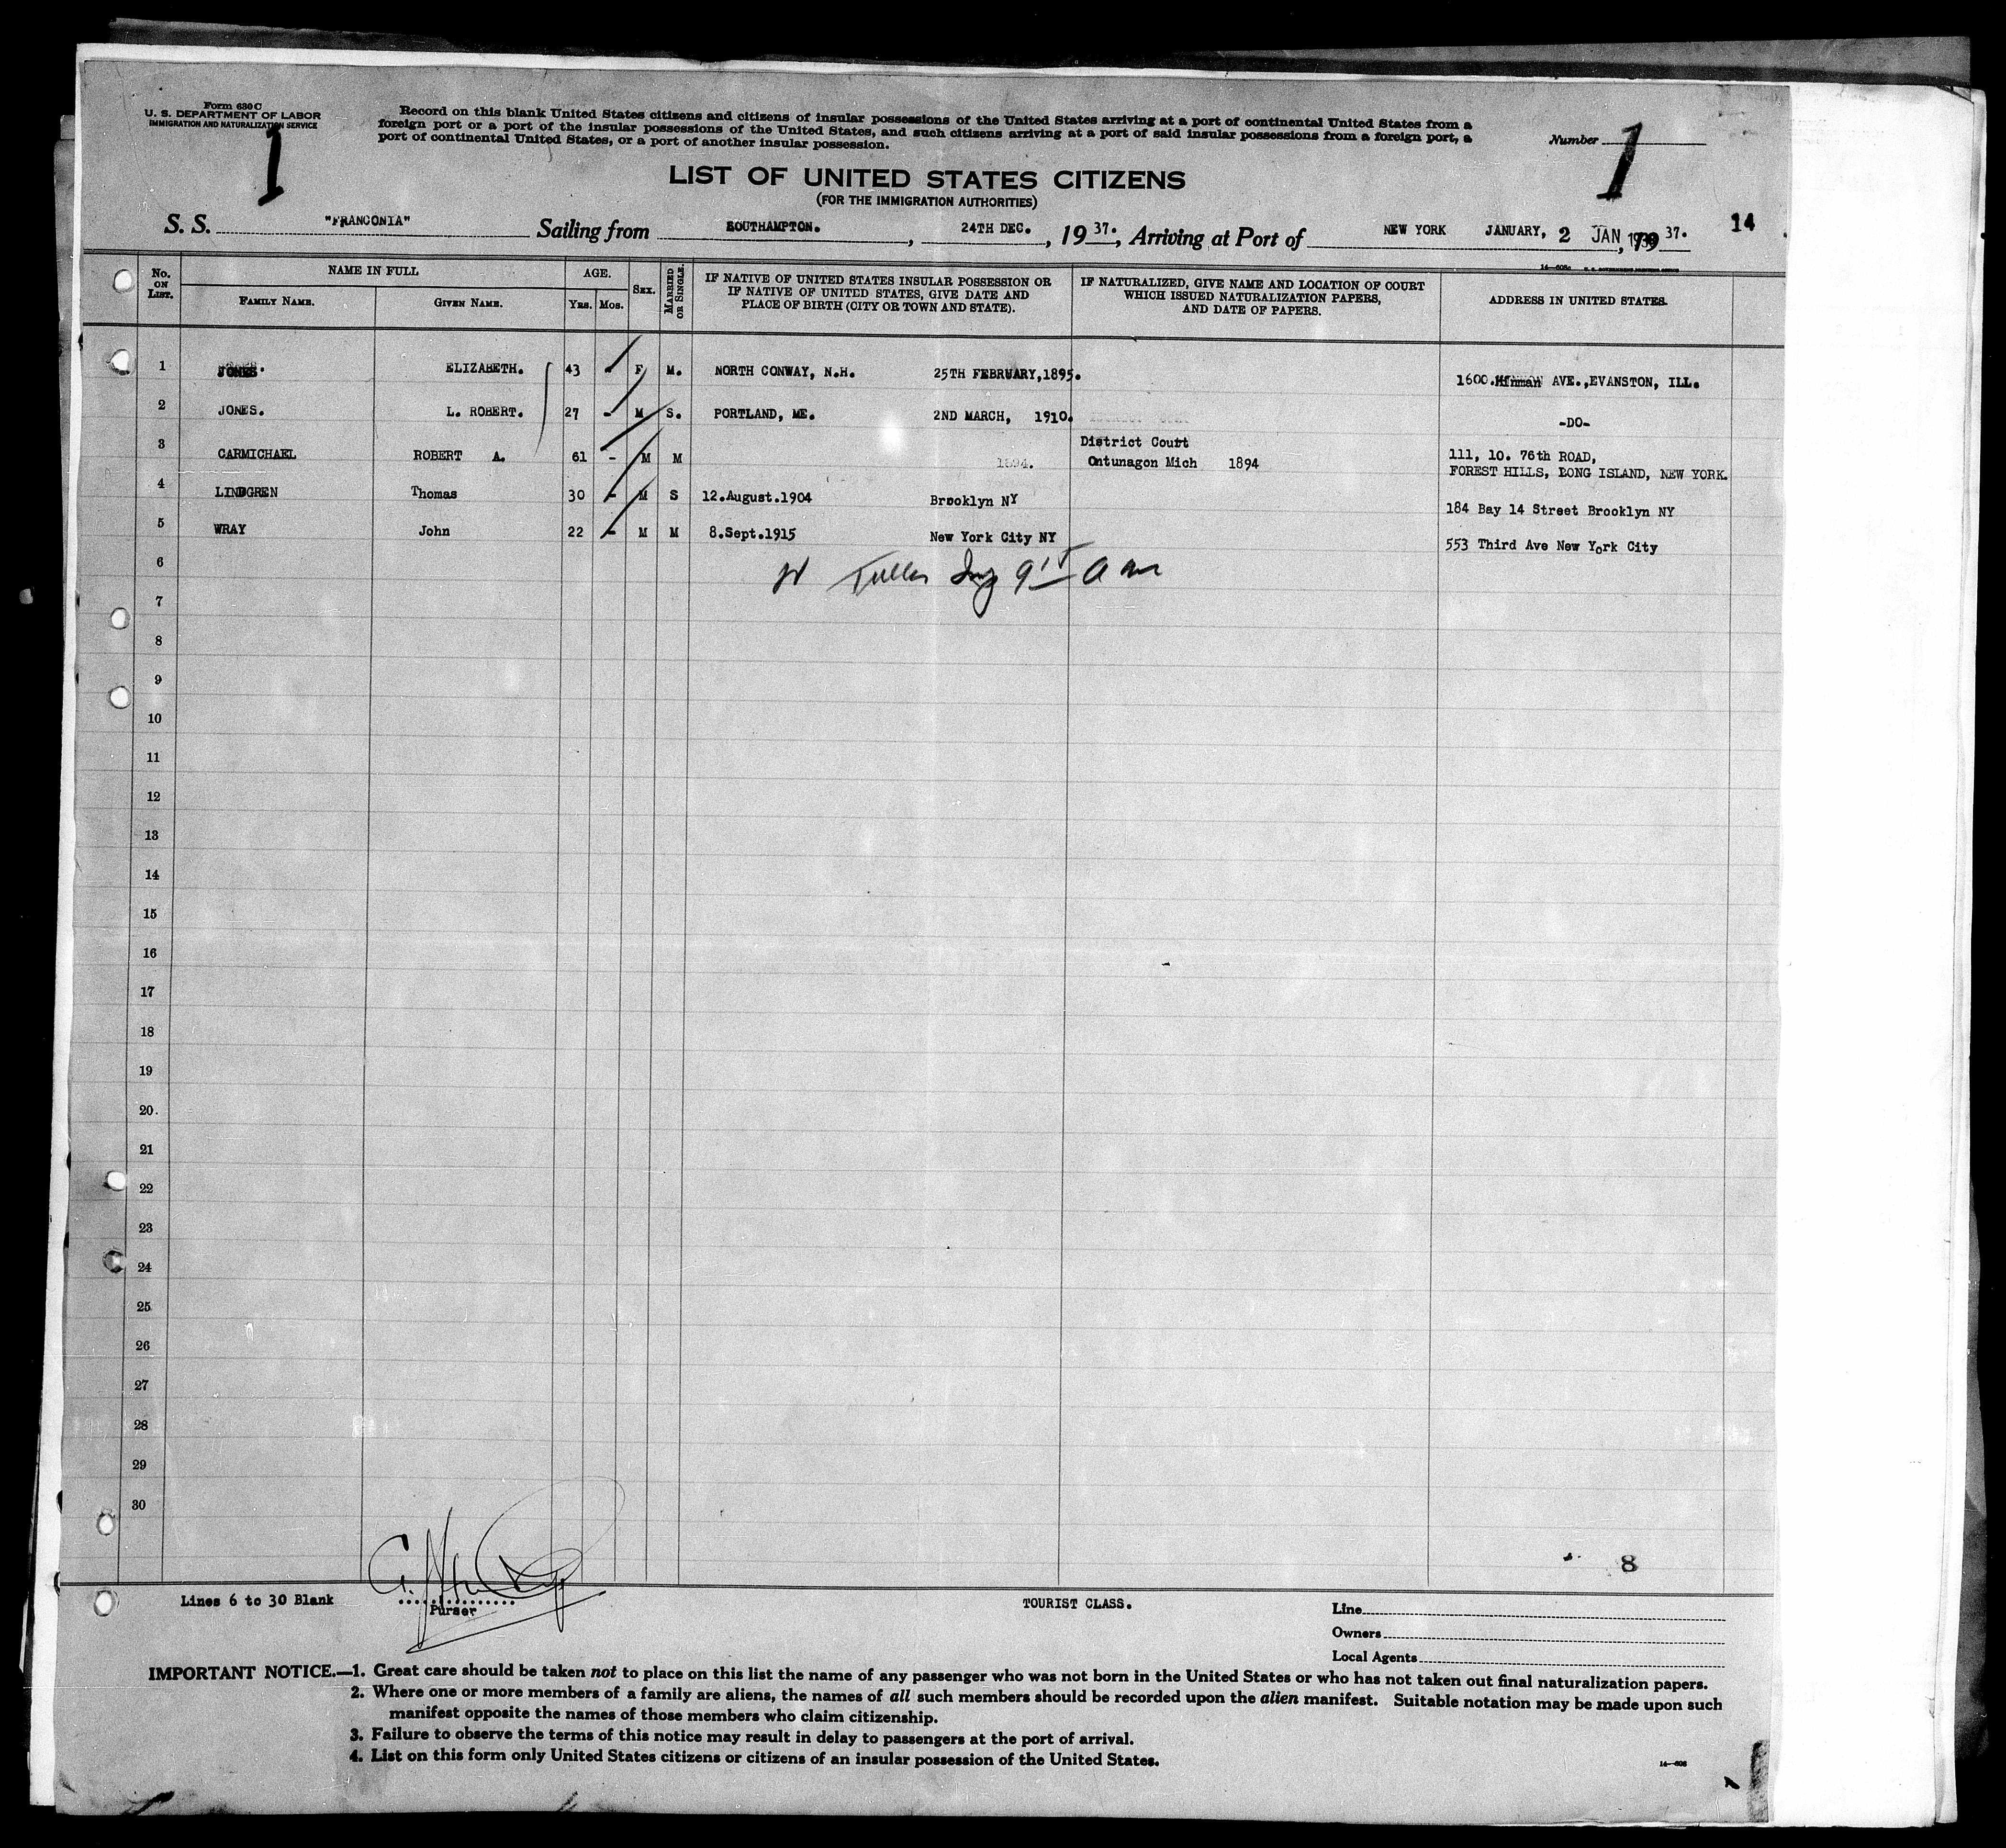 Form 630 C
U. S. DEPARTMENT OF LABOR
IMMIGRATION AND NATURALIZATION SERVICE
1
Record on this blank United States citizens and citizens of insular possessions of the United States arriving at a port of continental United States from a
foreign port or a port of the insular possessions of the United States, and such citizens arriving at a port of said insular possessions from a foreign port, a
port of continental United States, or a port of another insular possession.
Number 1
LIST OF UNITED STATES CITIZENS
(FOR THE IMMIGRATION AUTHORITIES)
S. S. "FRANCONIA" Sailing from SOUTHAMPTON. , 24TH DEC. , 19 37. , Arriving at Port of NEW YORK JANUARY, 2 JAN , 19 37. 14
No. ON LIST. NAME IN FULL AGE. SEX. MARRIED OR SINGLE.
FAMILY NAME. GIVEN NAME. YRS. MOS.
IF NATIVE OF UNITED STATES INSULAR POSSESSION OR
IF NATIVE OF UNITED STATES, GIVE DATE AND
PLACE OF BIRTH (CITY OR TOWN AND STATE).
IF NATURALIZED, GIVE NAME AND LOCATION OF COURT
WHICH ISSUED NATURALIZATION PAPERS,
AND DATE OF PAPERS.
ADDRESS IN UNITED STATES.
1 JONES. ELIZABETH. 43 - F M. NORTH CONWAY, N.H. 25TH FEBRUARY,1895. 1600.Hinman AVE.,EVANSTON, ILL.
2 JONES. L. ROBERT. 27 - M S. PORTLAND, ME. 2ND MARCH, 1910. -DO-
3 CARMICHAEL ROBERT A. 61 - M M 1894. District Court
Ontunagon Mich 1894 111, 10. 76th ROAD,
FOREST HILLS, LONG ISLAND, NEW YORK.
4 LINDGREN Thomas 30 - M S 12.August.1904 Brooklyn NY 184 Bay 14 Street Brooklyn NY
5 WRAY John 22 - M M 8.Sept.1915 New York City NY 553 Third Ave New York City
6
7
8
9
10
11
12
13
14
15
16
17
18
19
20.
21
22
23
24
25
26
27
28
29
30
8
Lines 6 to 30 Blank
Purser
TOURIST CLASS.
Line
Owners
Local Agents
IMPORTANT NOTICE.—1. Great care should be taken not to place on this list the name of any passenger who was not born in the United States or who has not taken out final naturalization papers.
2. Where one or more members of a family are aliens, the names of all such members should be recorded upon the alien manifest. Suitable notation may be made upon such
manifest opposite the names of those members who claim citizenship.
3. Failure to observe the terms of this notice may result in delay to passengers at the port of arrival.
4. List on this form only United States citizens or citizens of an insular possession of the United States.
14—608